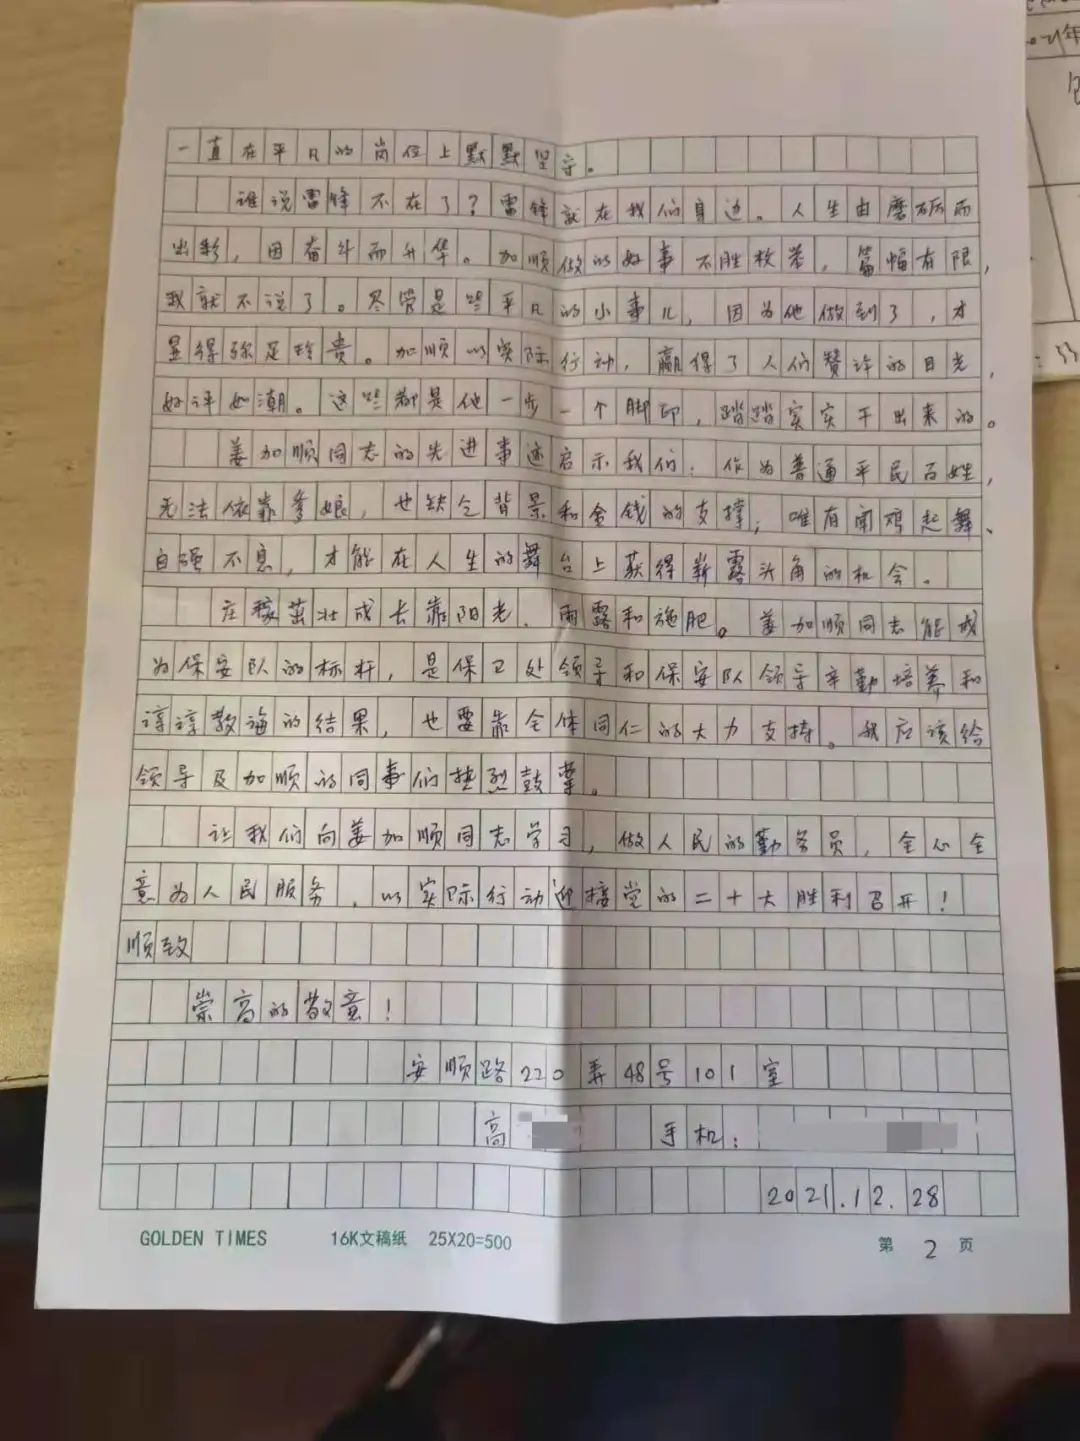 一直在平凡的岗位上默默坚守。
谁说雷锋不在了？雷锋就在我们身边。人生由磨砺而
出彩，因奋斗而升华。加顺做的好事不胜枚举，篇幅有限，
我就不说了。尽管是些平凡的小事儿，因为他做到了，才
显得弥足珍贵。加顺以实际行动，赢得了人们赞许的目光，
好评如潮。这些都是他一步一个脚印，踏踏实实干出来的。
姜加顺同志的先进事迹启示我们：作为普通平民百姓，
无法依靠爹娘，也缺乏背景和金钱的支撑；唯有闻鸡起舞、
自强不息，才能在人生的舞台上获得崭露头角的机会。
庄稼茁壮成长靠阳光、雨露和施肥。姜加顺同志能成
为保安队的标杆，是保卫处领导和保安队领导辛勤培养和
谆谆教诲的结果，也要靠全体同仁的大力支持。我应该给
领导及加顺的同事们热烈鼓掌。
让我们向姜加顺同志学习，做人民的勤务员，全心全
意为人民服务，以实际行动迎接党的二十大胜利召开！
顺致
崇高的敬意！
安顺路220弄48号101室
高 手机：
2021.12.28
GOLDEN TIMES 16K文稿纸 25X20=500 第2页